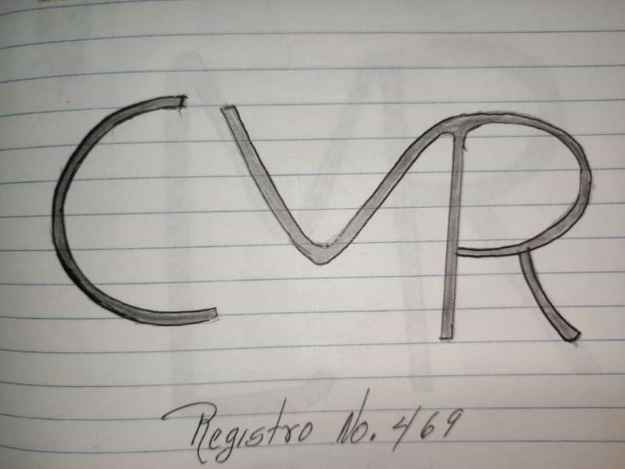 CVR
Registro No. 469